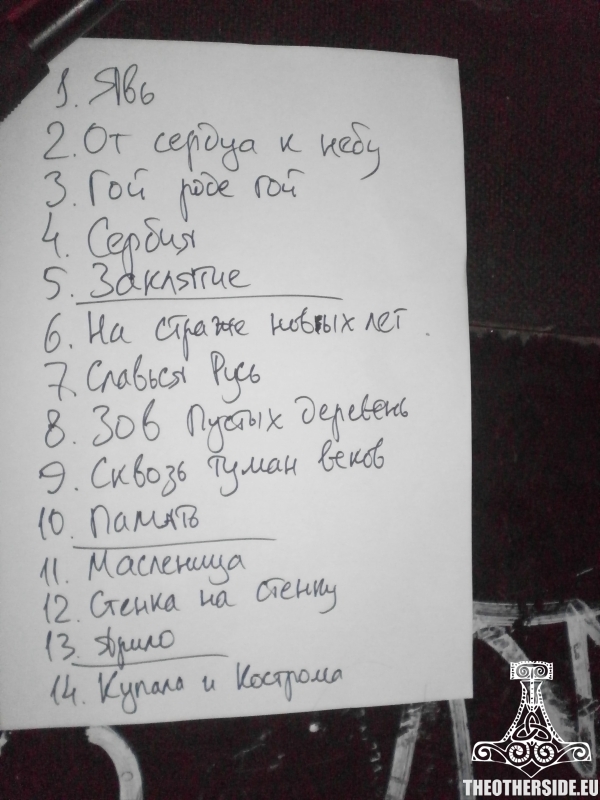 1. Явь
2. От сердца к небу
3. Гой роде гой
4. Сербия
5. Заклятие
6. На страже новых лет
7. Славься Русь
8. Зов пустых деревень
9. Сквозь туман веков
10. Память
11. Масленица
12. Стенка на стенку
13. Ярило
14. Купала и Кострома
THEOTHERSIDE.EU